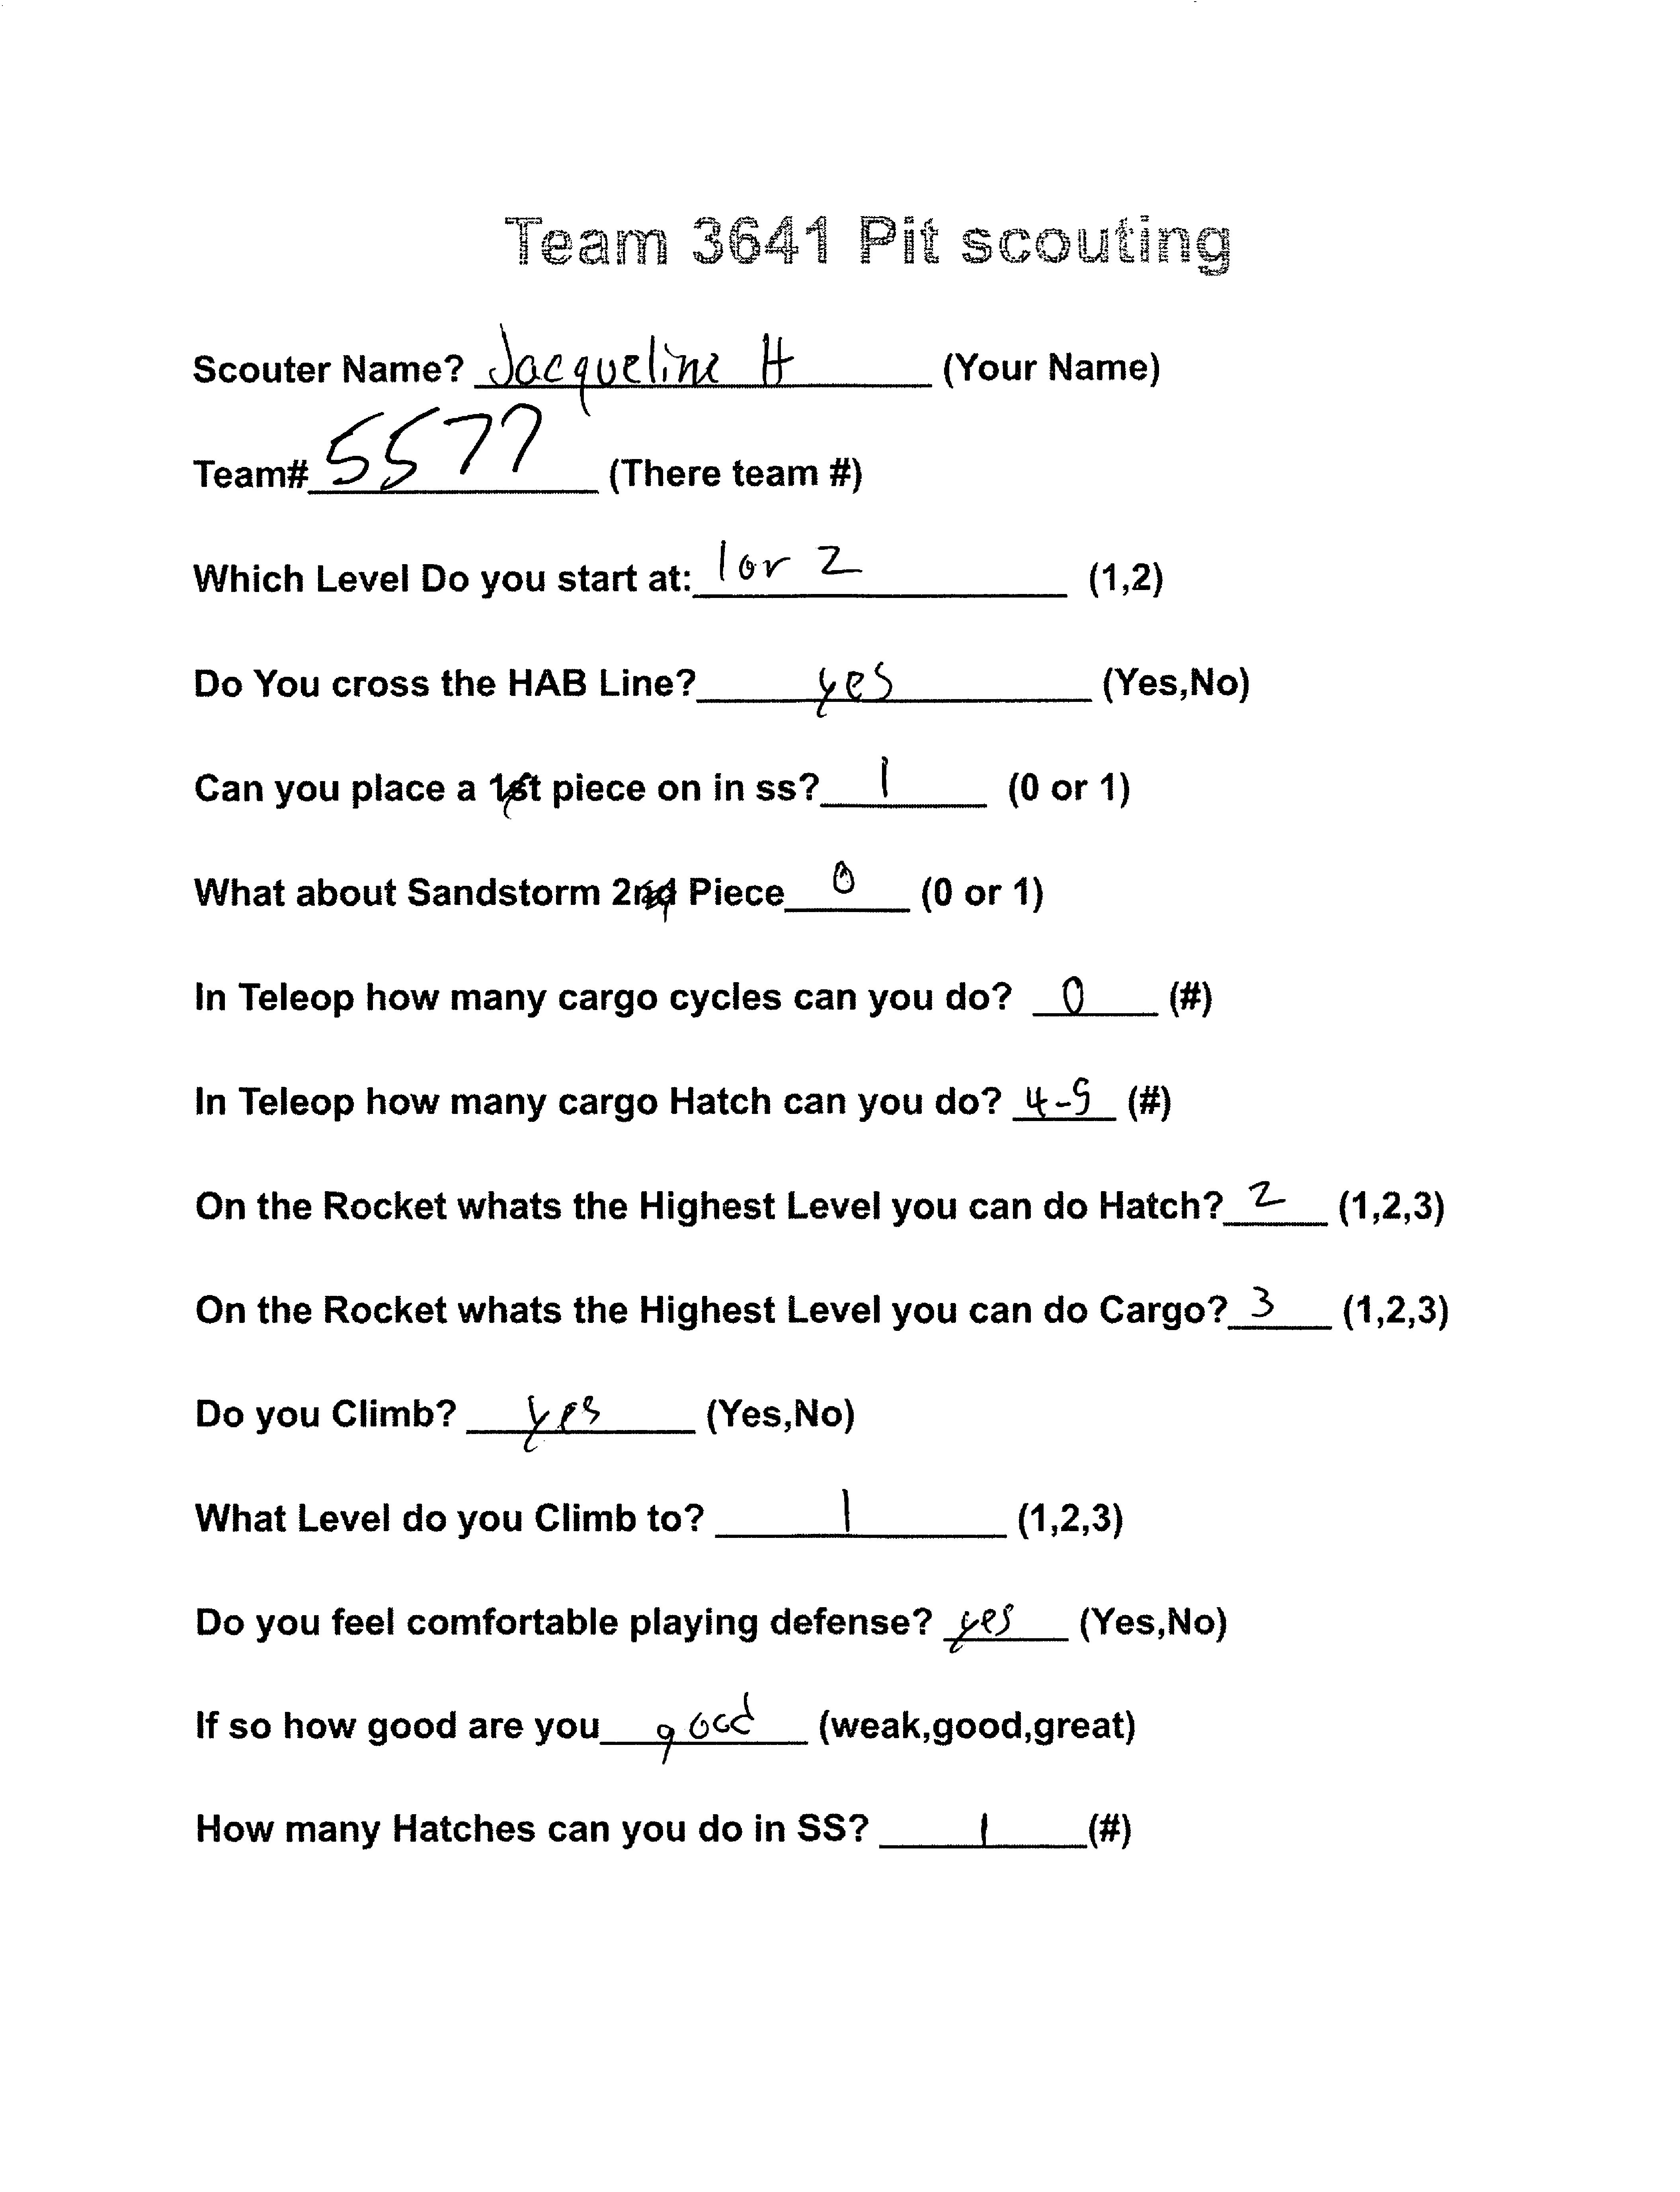 Team 3641 Pit scouting
Scouter Name? Jacqueline H (Your Name)
Team# 5577 (There team #)
Which Level Do you start at: 1 or 2 (1,2)
Do You cross the HAB Line? yes (Yes,No)
Can you place a 1st piece on in ss? 1 (0 or 1)
What about Sandstorm 2nd Piece 0 (0 or 1)
In Teleop how many cargo cycles can you do? 0 (#)
In Teleop how many cargo Hatch can you do? 4-5 (#)
On the Rocket whats the Highest Level you can do Hatch? 2 (1,2,3)
On the Rocket whats the Highest Level you can do Cargo? 3 (1,2,3)
Do you Climb? yes (Yes,No)
What Level do you Climb to? 1 (1,2,3)
Do you feel comfortable playing defense? yes (Yes,No)
If so how good are you good (weak,good,great)
How many Hatches can you do in SS? 1 (#)